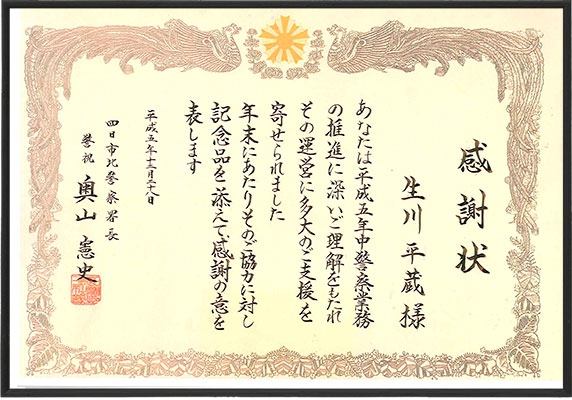 感謝状
生川平蔵様
あなたは平成五年中警察業務
の推進に深いご理解をもたれ
その運営に多大のご支援を
寄せられました
年末にあたりそのご協力に対し
記念品を添えて感謝の意を
表します
平成五年十二月二十八日
四日市北警察署長
警視 奥山憲史